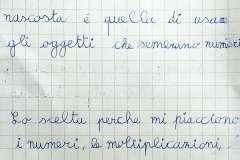 nascosta è quella di usare
gli oggetti che sembrano numeri
Lo scelta perche mi piacciono
i numeri, le moltiplicazioni,